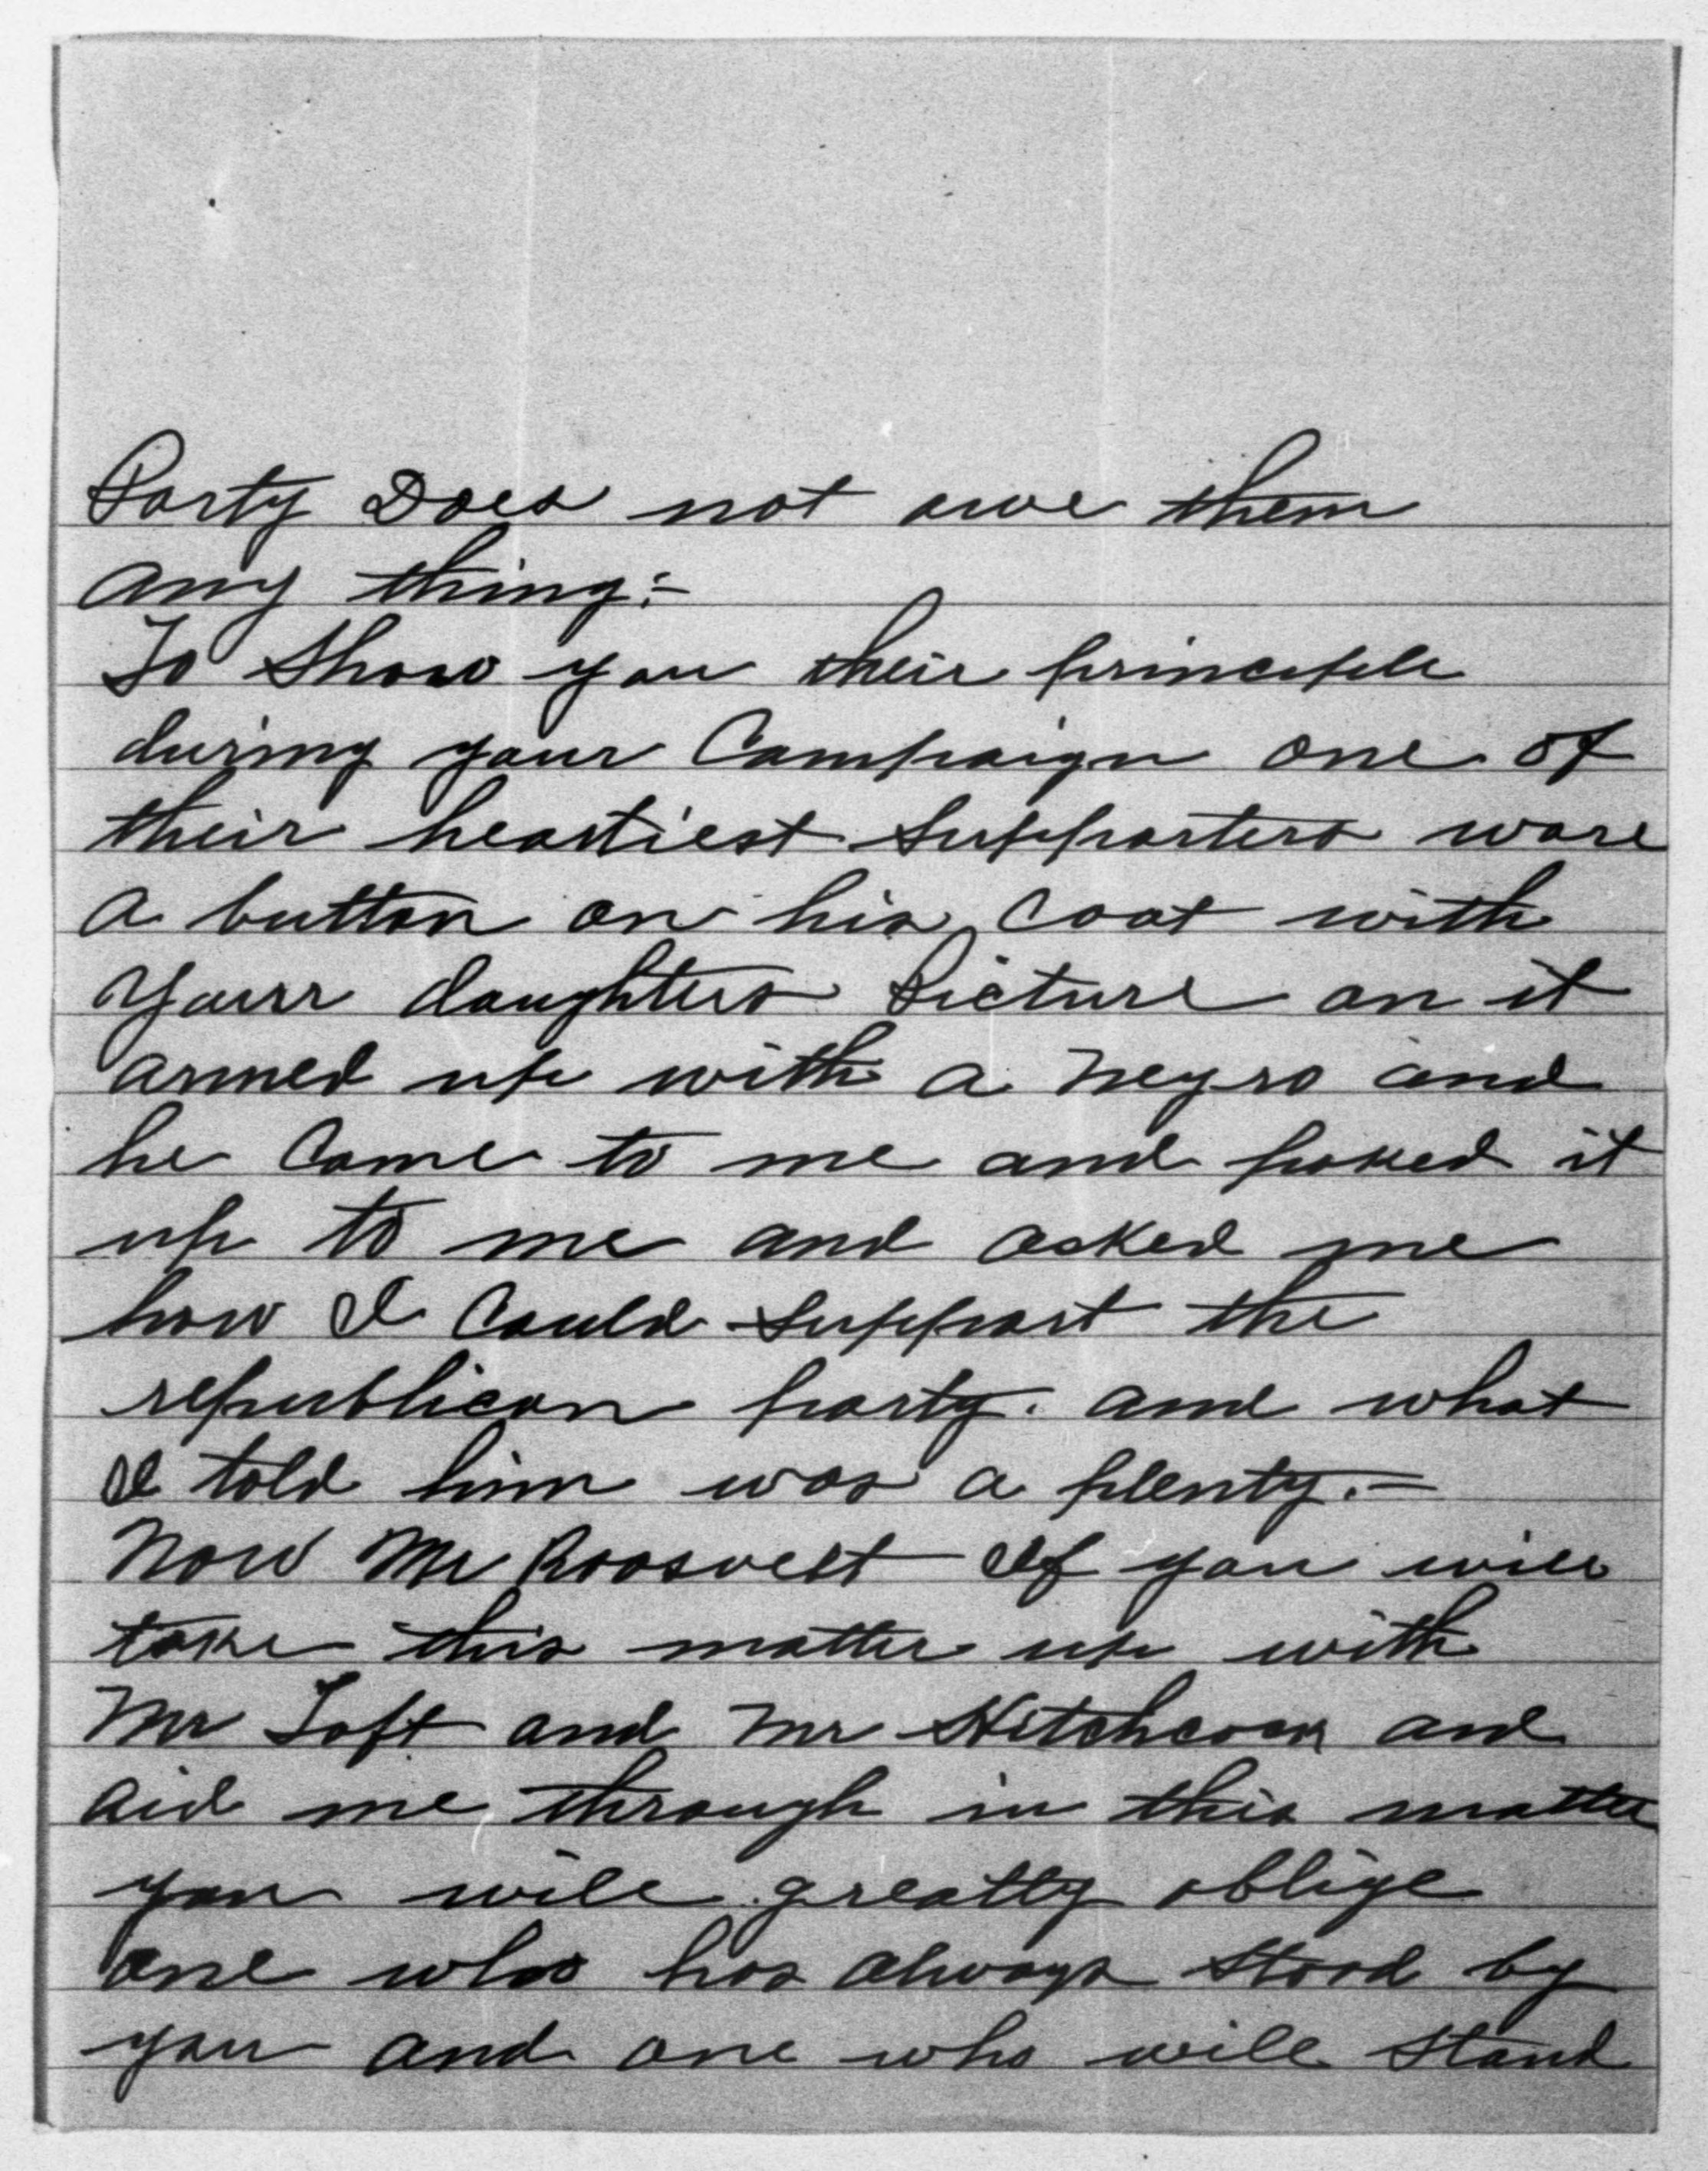 Party Does not owe them
any thing:-
To Show you their principle
during your Campaign one of
their heartiest Supporters ware
a button on his Coat with
Yourr daughters Picture on it
armed up with a Negro and
he Came to me and poked it
up to me and asked me
how I Could Support the
republican party. and what
I told him was a plenty.-
Now Mr Roosvelt If you will
take this matter up with
Mr Taft and Mr Hitchcock and
aid me through in this matter
you will greatly oblige
one who has always Stood by
you and one who will Stand